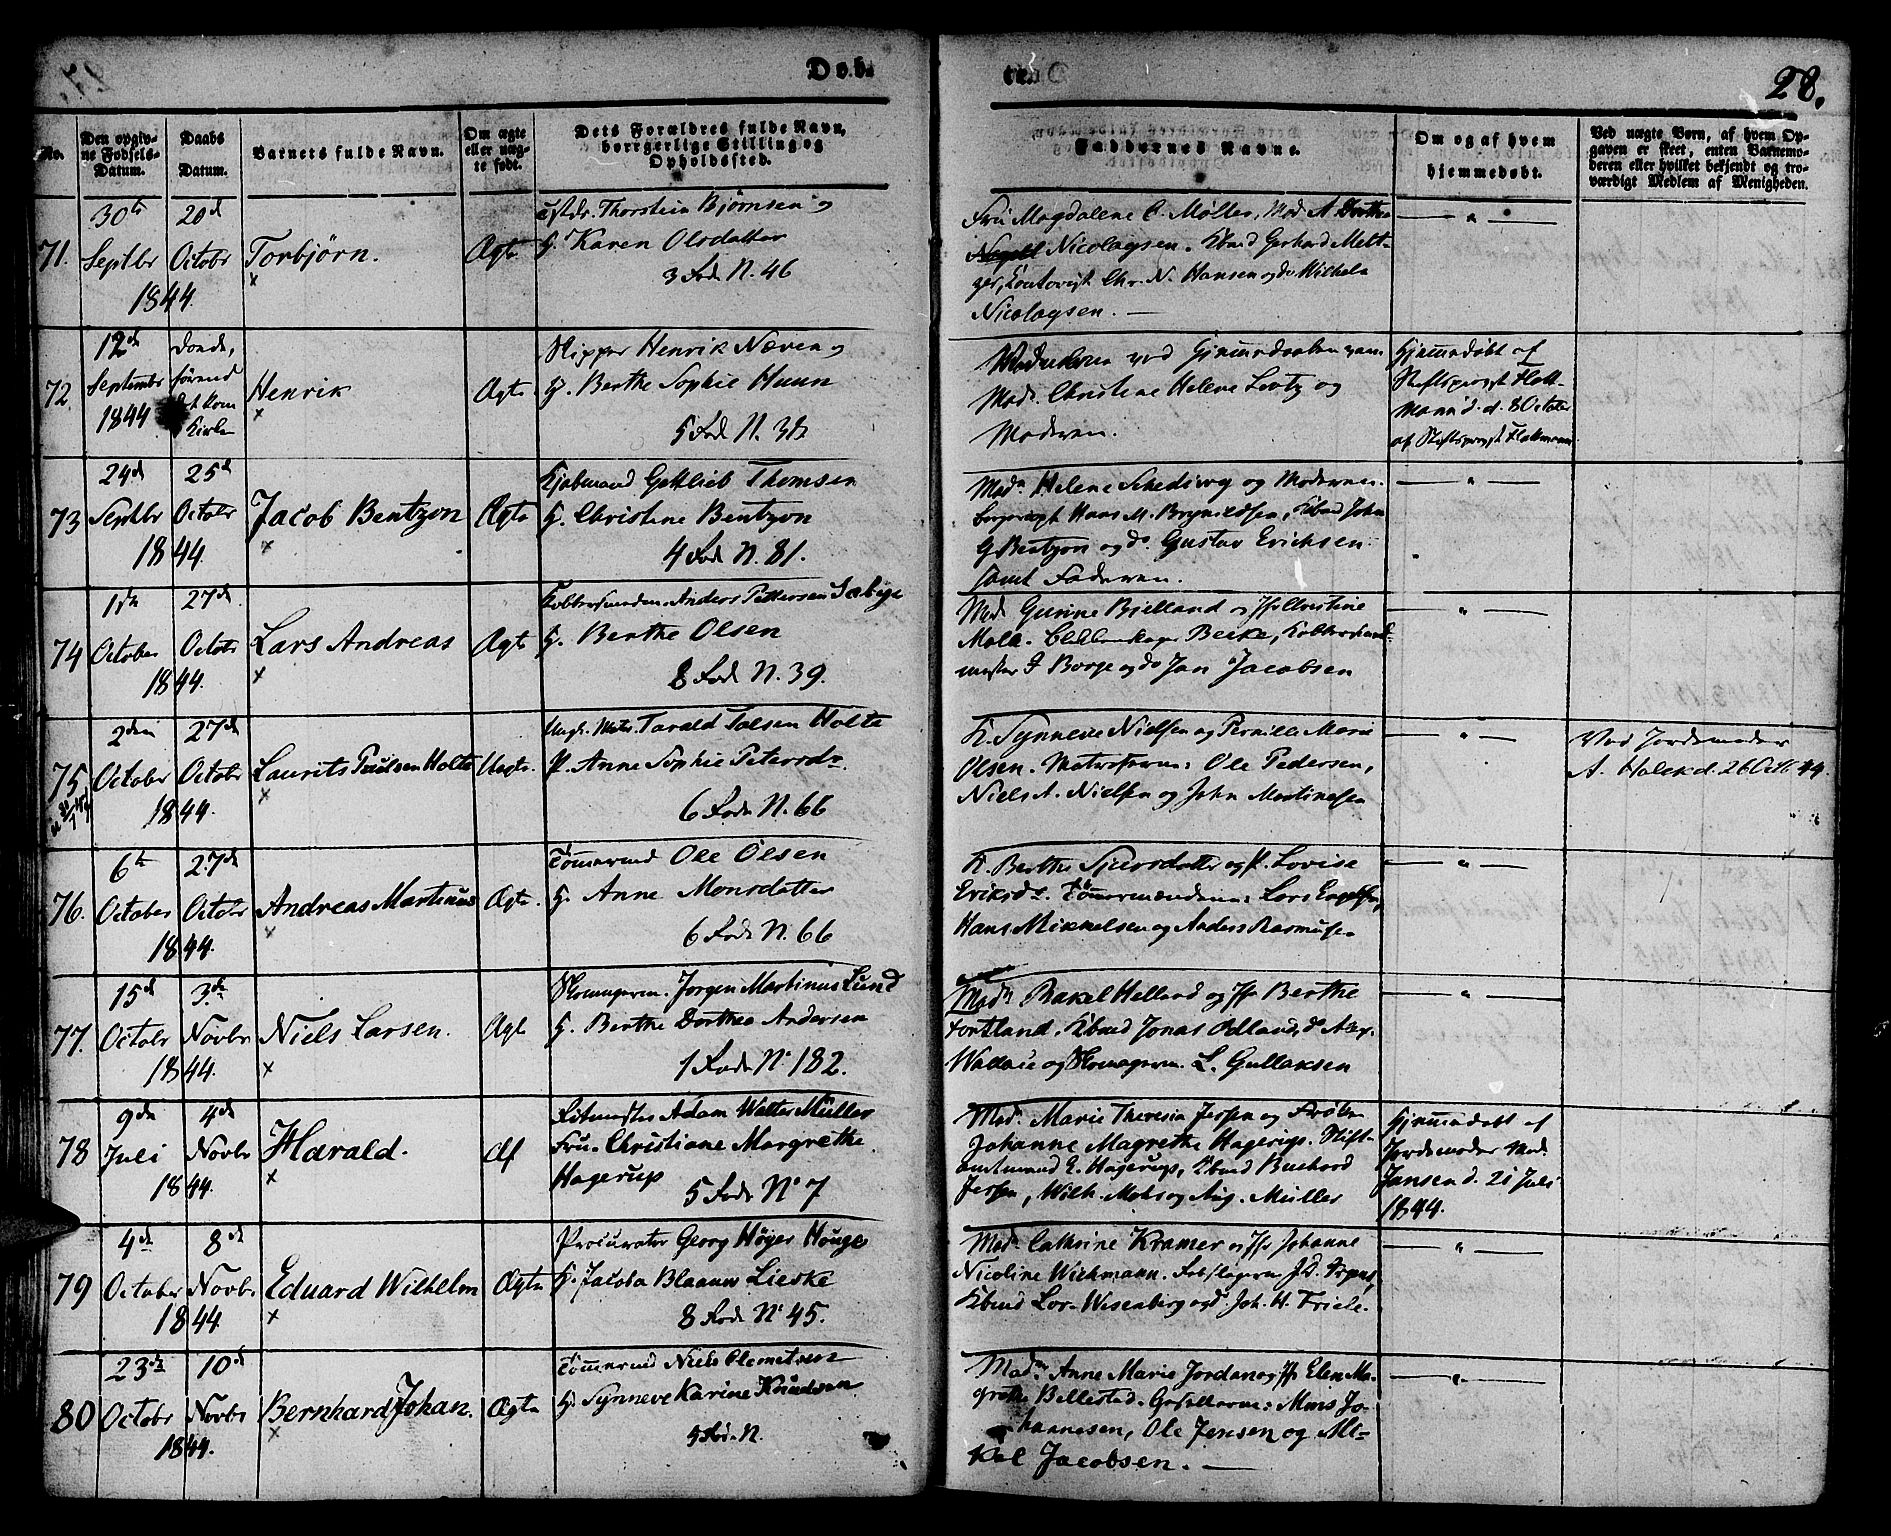 Døb-
te.
28.
No.
Den opgiv-
ne Fødsels-
Datum.
Daabs
Datum.
Barnets fulde Navn.
Om ægte
eller uæg-
te født.
Dets Forældres fulde Navn,
borgerlige Stilling og
Opholdssted.
Faddernes Navne.
Om og af hvem
hjemmedøbt.
Ved uægte Børn, af hvem Op-
gaven er skeet, enten Barnemo-
deren eller hvilket bekjendt og tro-
værdigt Medlem af Menigheden.
71.
30te Septbr
20d Octobr
1844.
Torbjørn.
×
Ægte
Thorstein Bjørnsen og
H. Karen Olsdatter
3 Rode N. 46
Fru Magdalene C. Møller, Mad. A. Dorthea
Nicolaysen. Kbmd Gerhard Mett-
ger, Chr. N. Hansen og do Wilhelm
Nicolaysen. —
— " —
72.
12te Septembr
1844
Kirken
Henrik
×
Ægte
Skipper Henrik Næven og
H. Berthe Sophie Huun
5 Rode N.
Mad. Christine Helene Lootz og
Moderen.
Hjemmedøbt af
Stiftsprovst Flott-
mann d. 8 October
af Stiftsprovst Flottmann
73
24d Septbr
25d Octobr
1844.
Jacob Bentzon
×
Ægte
Kjøbmand Gottlieb Thomsen
H. Christine Bentzon
4 Rode N. 81.
Madm Helene Schediwy og Moderen.
Hans M. Brynildsen, Kbmd John
G Bentzon og do Gustav Ericksen
samt Faderen.
— " —
74
1ste October
27de Octobr
1844.
Lars Andreas
×
Ægte
Anders Pettersen
H. Berthe Olsen
8 Rode N. 39.
Mad Gurine Bielland og Jfr Christine
Beeke,
mester I Borge og do Jan Jacobsen
— " —
75
2den October
27de Octobr
1844.
Laurits Poulsen Holte
×
Uægte.
Ungk. Matr. Tarald Tolsen Holte
P. Anne Sophie Petersdr.
6 Rode N. 66
K. Synneve Nielsen og Pernille Marie
Olsen. Matroserne: Ole Pedersen,
Niels A. Nielsen og John Martinesen
— " —
Ved Jordemoder
A. Holck d. 26 Octb 44.
76.
6te October
27de Octobr
1844.
Andreas Martinus
×
Ægte.
Tømmermd Ole Olsen
H. Anne Monsdatter
6 Rode N. 66
K. Berthe Sjursdatter og P. Lovise
Eriksdr. Tømmermændene: Lars
Hans Mikkelsen og Anders Rasmussen
— " —
77.
15de Octobr
3de Novbr
1844.
Niels Larsen.
×
Ægte
Skomagerm. Jørgen Martinus Lund
H. Berthe Dorthea Andersen
1 Rode No 182.
Madm Rakel Helland og Jfr Berthe
Fortland. Kbmd Jonas Odland, do Aug.
Wallace og Skomagerm. L. Gullaksen
— " —
78
9de Juli
4de Novbr
1844.
Harald.
×
Æ
Adam Walter Müller
Fru. Christiane Margrethe
Hagerup
5 Rode No 7
Mad. Marie Theresia Jersen og Frøken
Johanne Magrethe Hagerup. Stift-
amtmand E. Hagerup, Kbmd Buchard
Jersen, Wilh. Mohr og Aug. Müller
Hjemmedøbt af
Jordemoder Mad.
Jansen d. 21 Juli
1844.
79
4de October
8de Novbr
1844.
Eduard Wilhelm
×
Ægte
Procurator Georg Høyer Houge
H. Jacoba Blaauw Lieske
8 Rode No 45.
Mad. Cathrine Kramer og Jfr Johanne
Nicoline Wichmann.
Kbmd Lor. Wesenberg og do Joh. H. Friele.
— " —
80
23de Octobr
10de Novbr
1844.
Bernhard Johan.
×
Ægte
Tømmermd Niels Clemetsen
H. Synneve Karine Knudsen
N.
Madm Anne Marie Jordan og Jfr Elen Ma-
grethe Bellestad. Gesellerne: Mons Jo-
hannesen, Ole Jensen og Mi-
kal Jacobsen. —
— " —